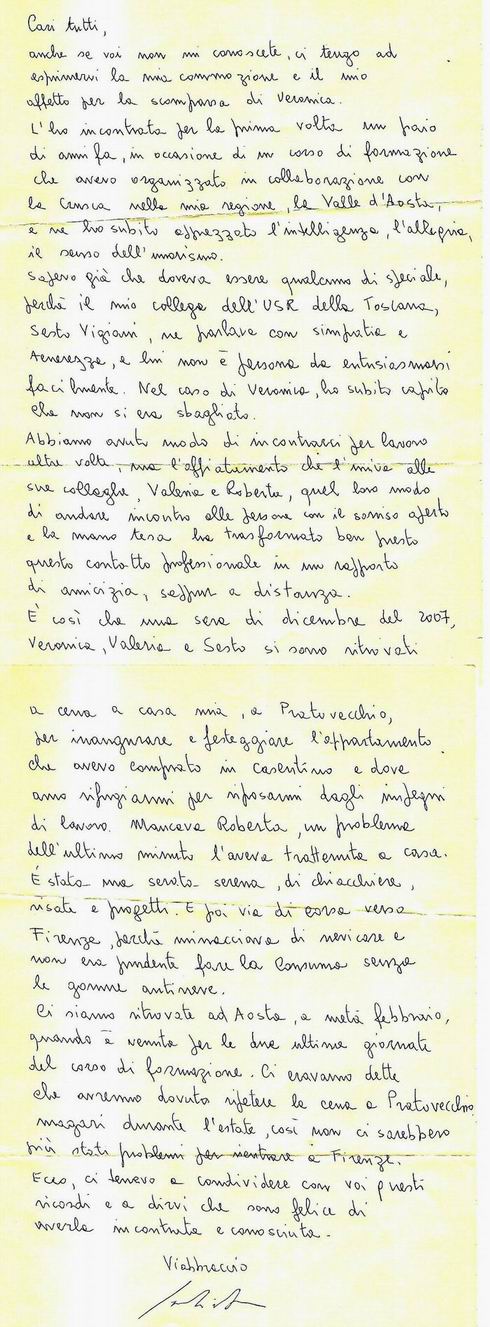 Cari tutti,
anche se voi non mi conoscete, ci tengo ad
esprimervi la mia commozione e il mio
affetto per la scomparsa di Veronica.
L'ho incontrata per la prima volta un paio
di anni fa, in occasione di un corso di formazione
che avevo organizzato in collaborazione con
la Crusca nella mia regione, la Valle d'Aosta,
e ne ho subito apprezzato l'intelligenza, l'allegria,
il senso dell'umorismo.
Sapevo già che doveva essere qualcuno di speciale,
perché il mio collega dell'USR della Toscana,
Sesto Vigiani, ne parlava con simpatia e
tenerezza, e lui non è persona da entusiasmarsi
facilmente. Nel caso di Veronica, ho subito capito
che non si era sbagliato.
Abbiamo avuto modo di incontrarci per lavoro
altre volte, ma l'affiatamento che l'univa alle
sue colleghe, Valeria e Roberta, quel loro modo
di andare incontro alle persone con il sorriso aperto
e la mano tesa ha trasformato ben presto
questo contatto professionale in un rapporto
di amicizia, seppur a distanza.
È così che una sera di dicembre del 2007,
Veronica, Valeria e Sesto si sono ritrovati
a cena a casa mia, a Pratovecchio,
per inaugurare e festeggiare l'appartamento
che avevo comprato in Casentino e dove
amo rifugiarmi per riposarmi dagli impegni
di lavoro. Mancava Roberta, un problema
dell'ultimo minuto l'aveva trattenuta a casa.
È stata una serata serena, di chiacchiere,
risate e progetti. E poi via di corsa verso
Firenze, perché minacciava di nevicare e
non era prudente fare la Consuma senza
le gomme antineve.
Ci siamo ritrovate ad Aosta, a metà febbraio,
quando è venuta per le due ultime giornate
del corso di formazione. Ci eravamo dette
che avremmo dovuto ripetere la cena a Pratovecchio
magari durante l'estate, così non ci sarebbero
più stati problemi per rientrare a Firenze.
Ecco, ci tenevo a condividere con voi questi
ricordi e a dirvi che sono felice di
averla incontrata e conosciuta.
Vi abbraccio